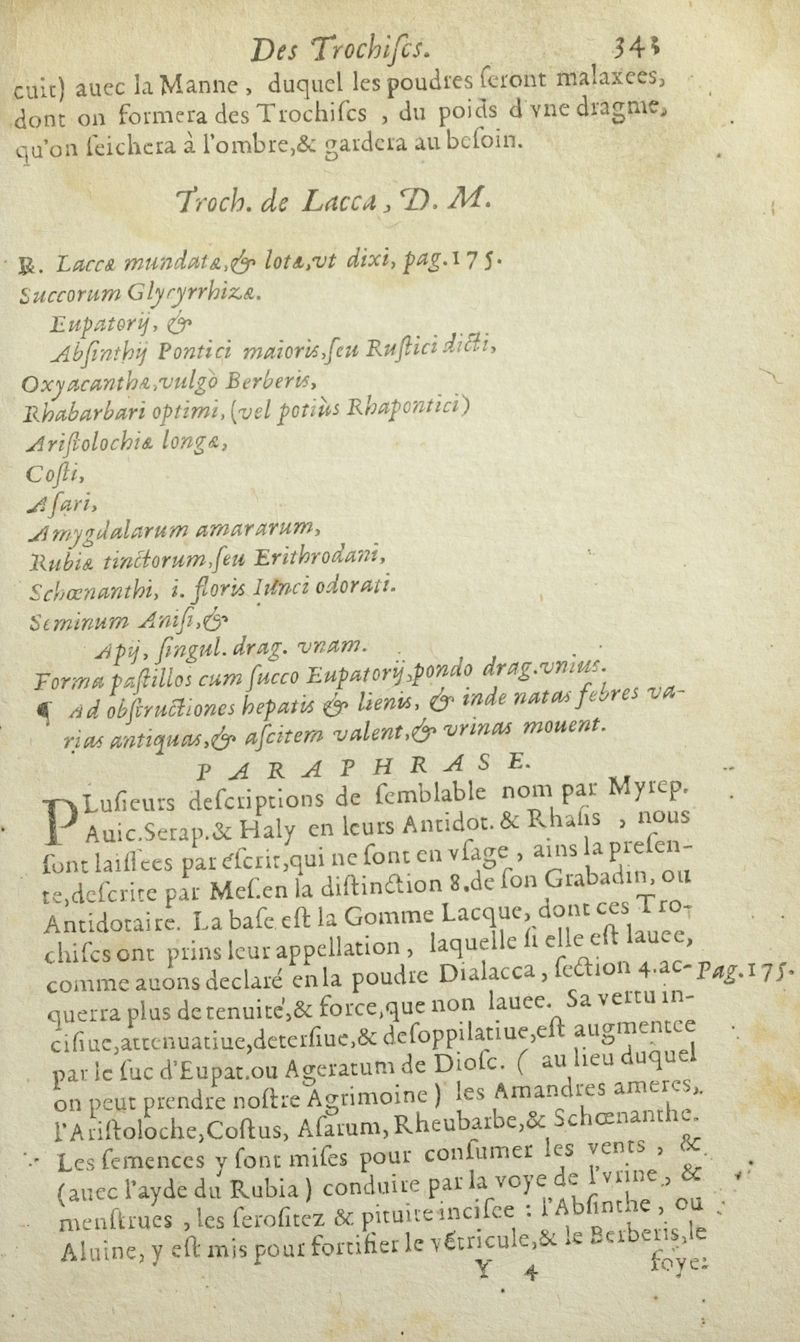 Des Trochiſcs. 343
cuit) auec la Manne, duquel les poudres ſeront malaxees,
dont on formera des Trochiſcs, du poids d'vne dragme,
qu'on ſeichera à l'ombre,& gardera au beſoin.
Troch. de Lacca, D. M.
℞. Laccæ mundatæ,& lotæ,vt dixi, pag.175.
Succorum Glycyrrhizæ.
Eupatorij, &
Abſinthij Pontici maioris,ſeu Ruſtici dicti,
Oxyacanthæ,vulgò Berberis,
Rhabarbari optimi, (vel potiùs Rhapontici)
Ariſtolochiæ longæ,
Coſti,
Aſari,
Amygdalarum amararum,
Rubiæ tinctorum,ſeu Erithrodani,
Schœnanthi, i. floris Iunci odorati.
Seminum Aniſi,&
Apij, ſingul. drag. vnam.
Forma paſtillos cum ſucco Eupatorij,pondo drag.vnius.
¶ Ad obſtructiones hepatis & lienis, & inde natas febres va-
rias antiquas,& aſcitem valent,& vrinas mouent.
PARAPHRASE.
PLuſieurs deſcriptions de ſemblable nom par Myrep.
Auic.Serap.& Haly en leurs Antidot. & Rhaſis, nous
ſont laiſſees par eſcrit,qui ne ſont en vſage, ains la preſen-
te,deſcrite par Meſ.en la diſtinction 8.de ſon Grabadin, ou
Antidotaire. La baſe eſt la Gomme Lacque, dont ces Tro-
chiſcs ont prins leur appellation, laquelle ſi elle eſt lauee,
comme auons declaré en la poudre Dialacca, ſection 4.ac- Pag.175.
querra plus de tenuité,& force,que non lauee. Sa vertu in-
ciſiue,attenuatiue,deterſiue,& deſoppilatiue,eſt augmentee
par le ſuc d'Eupat.ou Ageratum de Dioſc. ( au lieu duquel
on peut prendre noſtre Agrimoine ) les Amandres ameres,
l'Ariſtoloche,Coſtus, Aſarum, Rheubarbe,& Schœnanthe.
Les ſemences y ſont miſes pour conſumer les vents, &
(auec l'ayde du Rubia ) conduire par la voye de l'vrine, &
menſtrues, les ſeroſitez & pituite inciſee : l'Abſinthe, ou
Aluine, y eſt mis pour fortifier le vétricule,& le Berberis,le
Y 4 foye: